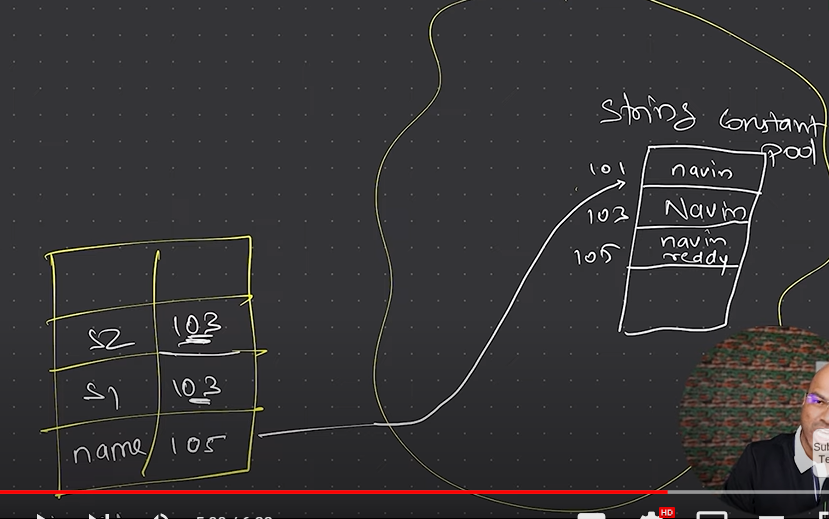 String Constant
pool
101 navin
103 Navin
105 navin
reddy
S2 103
S1 103
name 105
HD